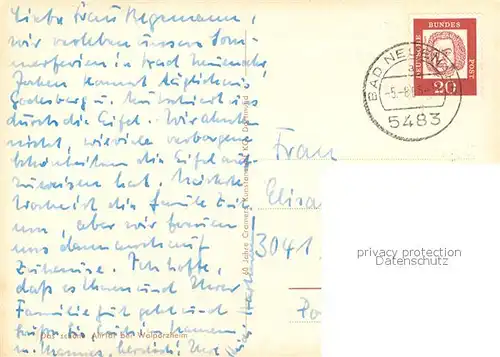 Liebe Frau Regemann,
wir verleben unsere Som-
merferien in Bad Neuenahr,
Jochen kommt täglich aus
Godesberg u. kutschiert uns
durch die Eifel. Wir ahnten
nicht, wieviele verborgene
Schönheiten die Eifel auf-
zuweisen hat. Nächste
Woche ist die
um, aber wir freuen
uns dann auch auf
Zuhause. Ich hoffe,
daß es Ihnen und Ihrer
Familie gut geht und
Das schöne Ahrtal bei Walporzheim
60 Jahre Cramers Kunstanstalt KG, Dortmund
DEUTSCHE BUNDESPOST
20
BAD NEUEN
5483
Frau
Elisa
3041
privacy protection
Datenschutz